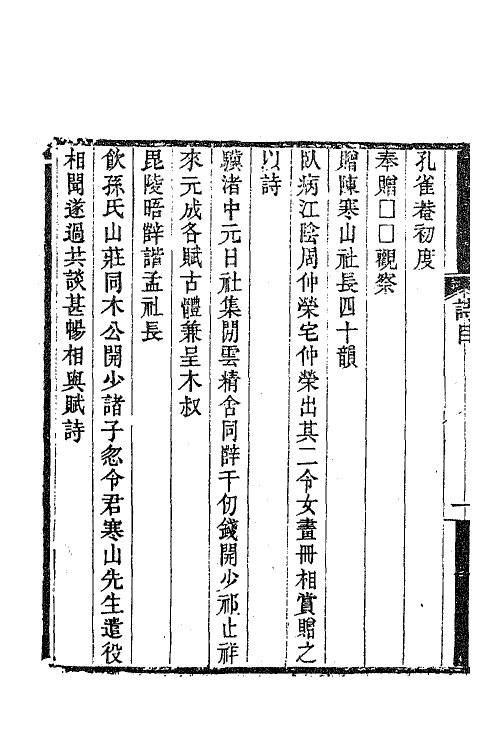 孔雀菴初度
奉贈□□觀察
贈陳寒山社長四十韻
臥病江陰周仲榮宅仲榮出其二令女畫冊相賞贈之
以詩
驥渚中元日社集閒雲精舍同辥千仞錢開少祁止祥
來元成各賦古體兼呈木叔
毘陵晤辥諧孟社長
飲孫氏山莊同木公開少諸子忽令君寒山先生遣役
相聞遂過共談甚暢相與賦詩
詩目
一